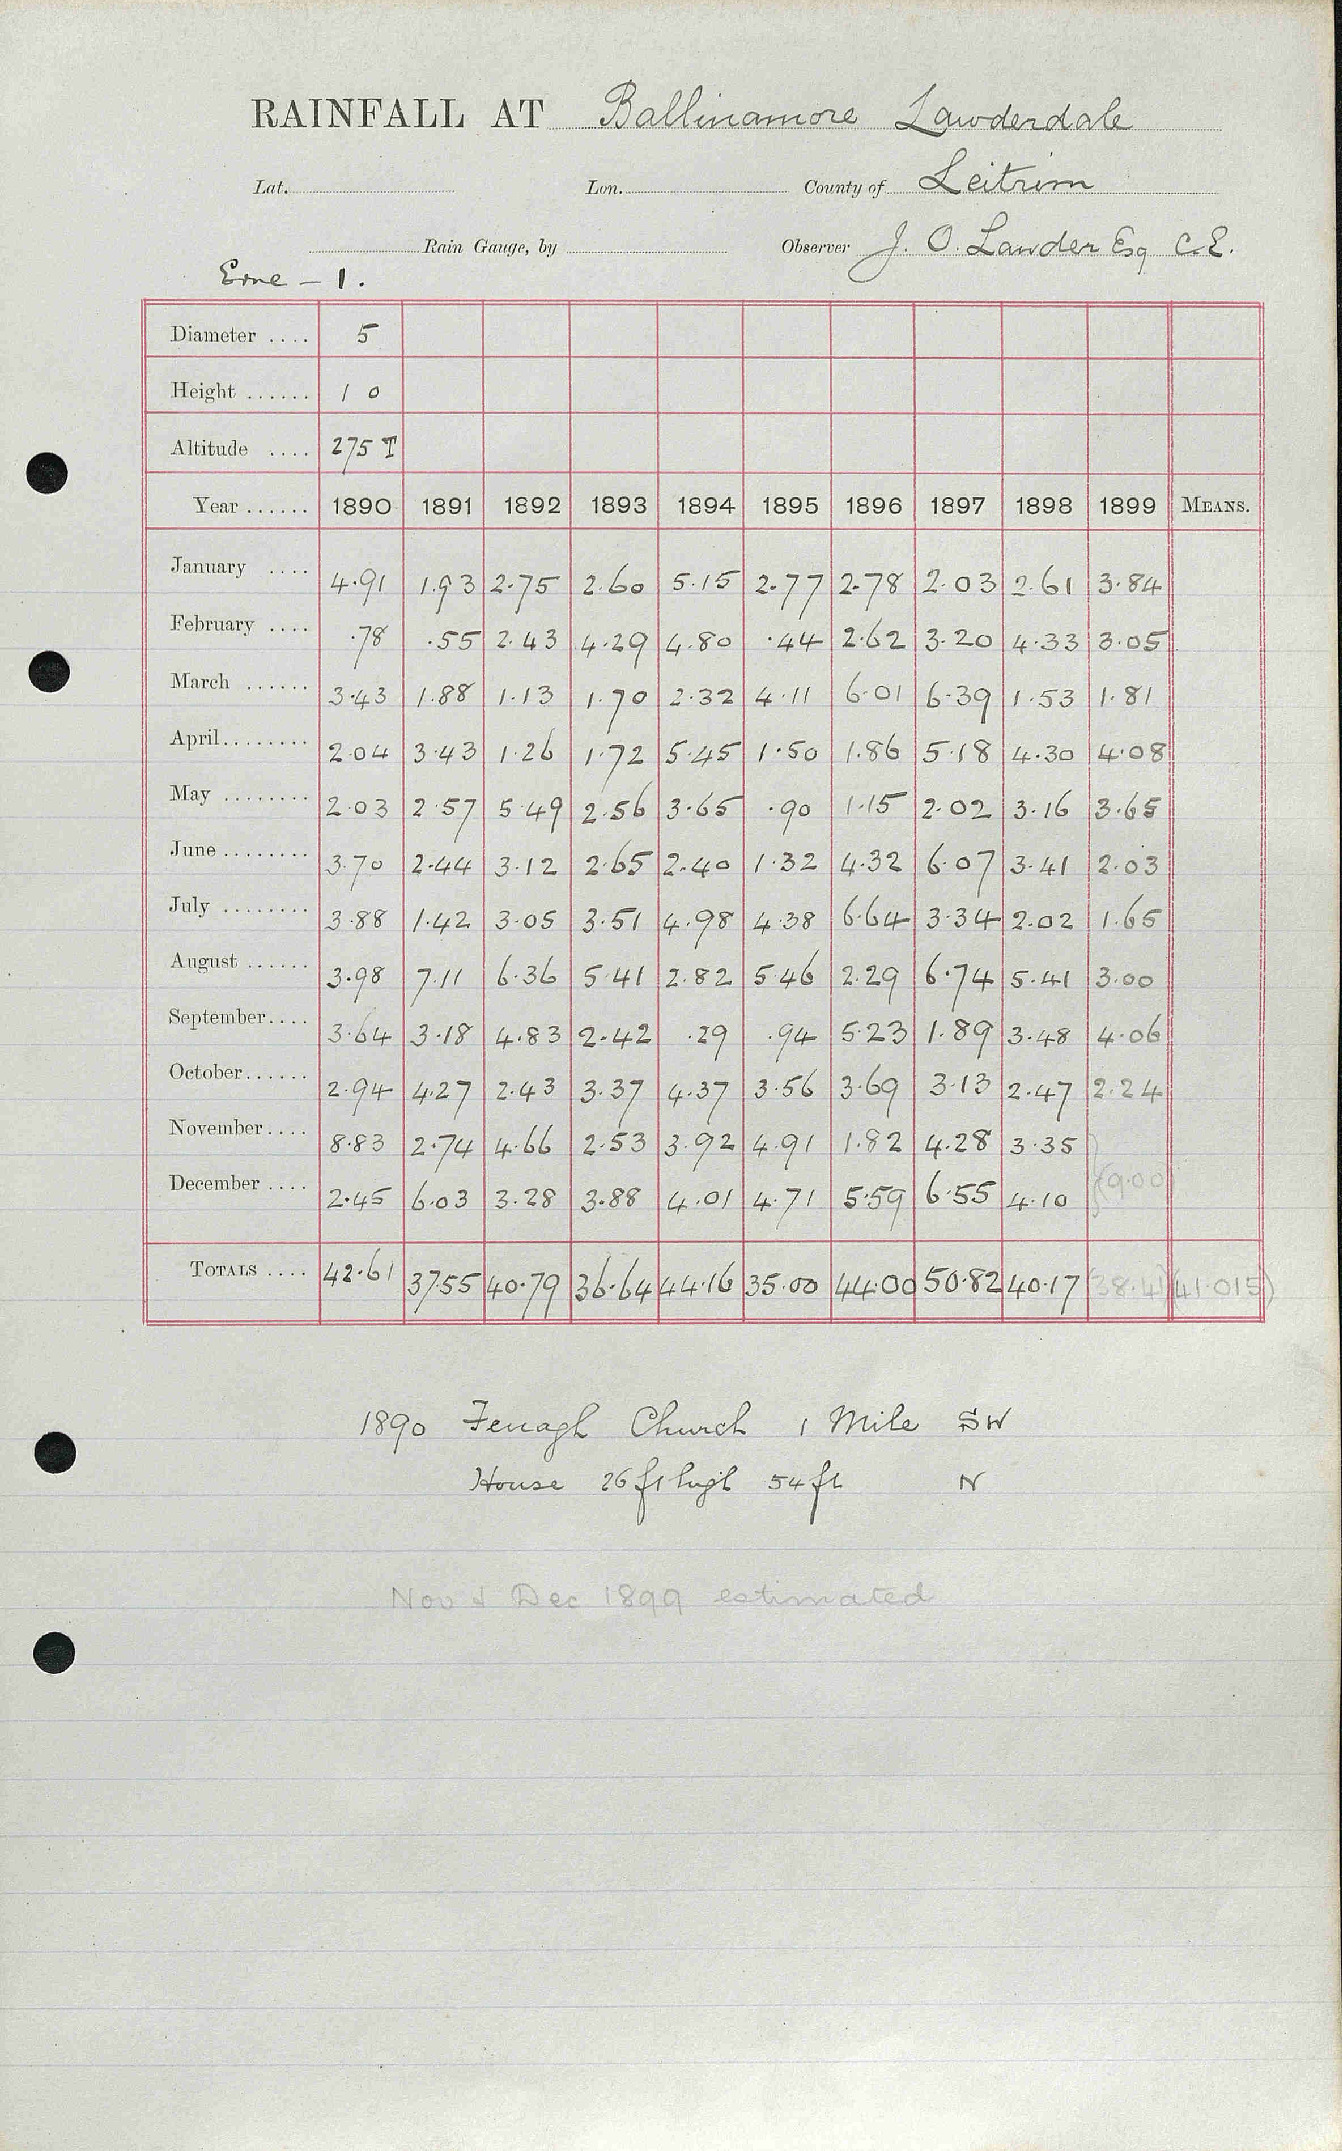 RAINFALL AT Ballinamore Lawderdale
Lat. Lon. County of Leitrim
Rain Gauge, by Observer J. O. Lawder Esq C.E.
Erne - 1.
Diameter .... 5
Height ...... 1 0
Altitude .... 275 T
Year ...... 1890 1891 1892 1893 1894 1895 1896 1897 1898 1899 MEANS.
January .... 4.91 1.93 2.75 2.60 5.15 2.77 2.78 2.03 2.61 3.84
February .... .78 .55 2.43 4.29 4.80 .44 2.62 3.20 4.33 3.05
March ...... 3.43 1.88 1.13 1.70 2.32 4.11 6.01 6.39 1.53 1.81
April........ 2.04 3.43 1.26 1.72 5.45 1.50 1.86 5.18 4.30 4.08
May ........ 2.03 2.57 5.49 2.56 3.65 .90 1.15 2.02 3.16 3.65
June ........ 3.70 2.44 3.12 2.65 2.40 1.32 4.32 6.07 3.41 2.03
July ........ 3.88 1.42 3.05 3.51 4.98 4.38 6.64 3.34 2.02 1.65
August ...... 3.98 7.11 6.36 5.41 2.82 5.46 2.29 6.74 5.41 3.00
September.... 3.64 3.18 4.83 2.42 .29 .94 5.23 1.89 3.48 4.06
October...... 2.94 4.27 2.43 3.37 4.37 3.56 3.69 3.13 2.47 2.24
November.... 8.83 2.74 4.66 2.53 3.92 4.91 1.82 4.28 3.35
December .... 2.45 6.03 3.28 3.88 4.01 4.71 5.59 6.55 4.10 (9.00)
TOTALS .... 42.61 37.55 40.79 36.64 44.16 35.00 44.00 50.82 40.17 (38.41) (41.015)
1890 Fenagh Church 1 Mile SW
House 26 ft high 54 ft N
Nov & Dec 1899 estimated